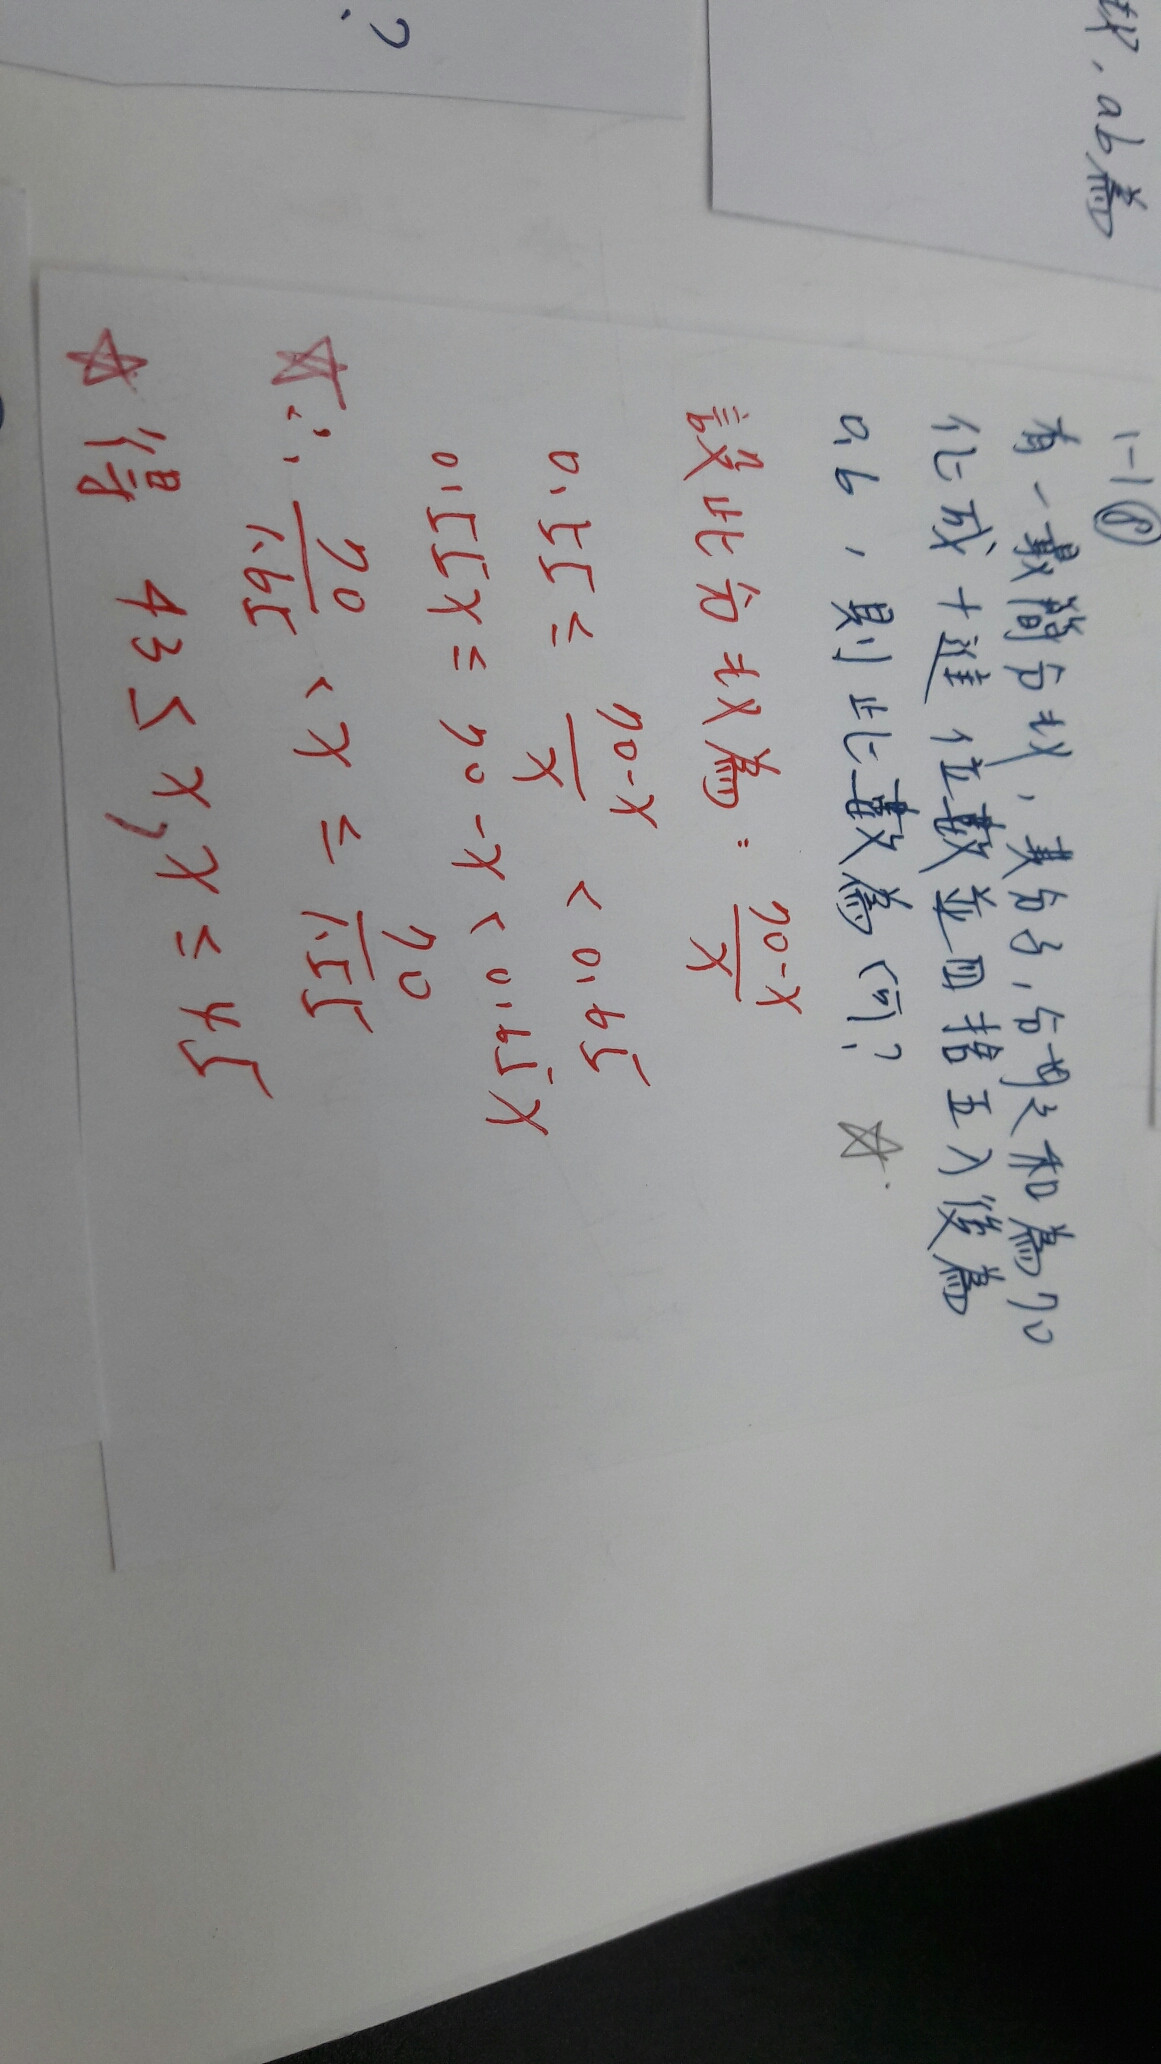 故, ab為
?
1-1 ⑧
有一最簡分故, 其分子, 分母之和為70
化成十進位數並四捨五入後為
0.6, 則此數為何?
設此分故為: 70-x/x
0.55 ≤ 70-x/x < 0.65
0.55x ≤ 70-x < 0.65x
∴ 70/1.65 < x ≤ 70/1.55
得 43 ≤ x, x ≤ 45